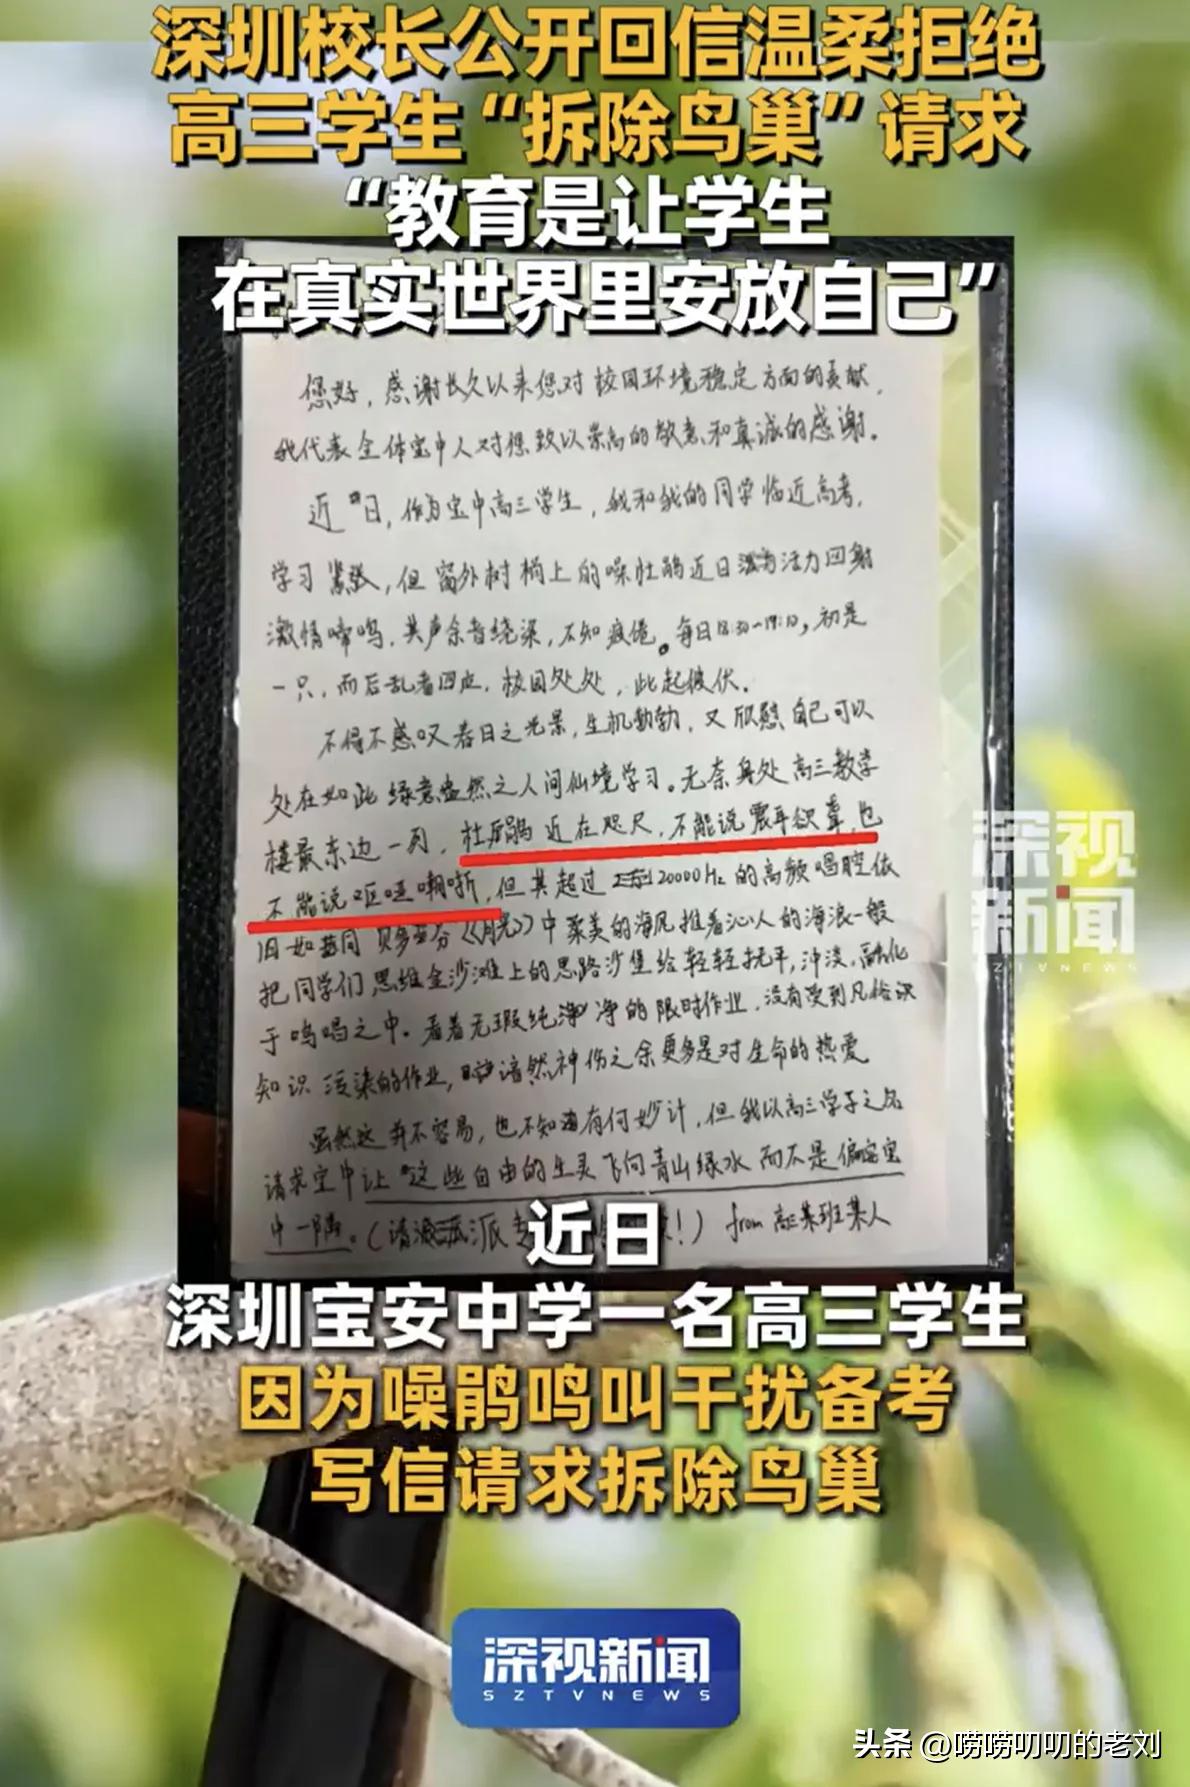 深圳校长公开回信温柔拒绝
高三学生“拆除鸟巢”请求
“教育是让学生
在真实世界里安放自己”
您好，感谢长久以来您对校园环境稳定方面的贡献，
我代表全体宝中人对您致以崇高的敬意和真诚的感谢。
近日，作为宝中高三学生，我和我的同学临近高考，
学习紧张，但窗外树梢上的噪杜鹃近日活力回射
激情啼鸣，其声余音绕梁，不知疲倦。每日18:30-19:10，初是
一只，而后乱者四应，校园处处，此起彼伏。
不得不感叹春日之光景，生机勃勃，又欣慰自己可以
处在如此绿意盎然之人间仙境学习。无奈身处高三教学
楼最东边一列，杜鹃近在咫尺，不能说震耳欲聋，也
不能说呕哑嘲哳，但其超过20000Hz的高频唱腔依
旧如同贝多芬《月光》中柔美的海风推着沁人的海浪一般
把同学们思维金沙滩上的思路沙堡给轻轻抚平，冲淡，融化
于鸣唱之中。看着无瑕纯净的限时作业，没有受到凡俗识
知识污染的作业，黯然神伤之余更多是对生命的热爱
虽然这并不容易，也不知道有何妙计，但我以高三学子之名
请求宝中让“这些自由的生灵飞向青山绿水而不是偏安宝
中一隅。（请派专！）from高三某班某人
近日
深圳宝安中学一名高三学生
因为噪鹃鸣叫干扰备考
写信请求拆除鸟巢
深视新闻
SZTVNEWS
深视新闻
SZTVNEWS
头条 @唠唠叨叨的老刘